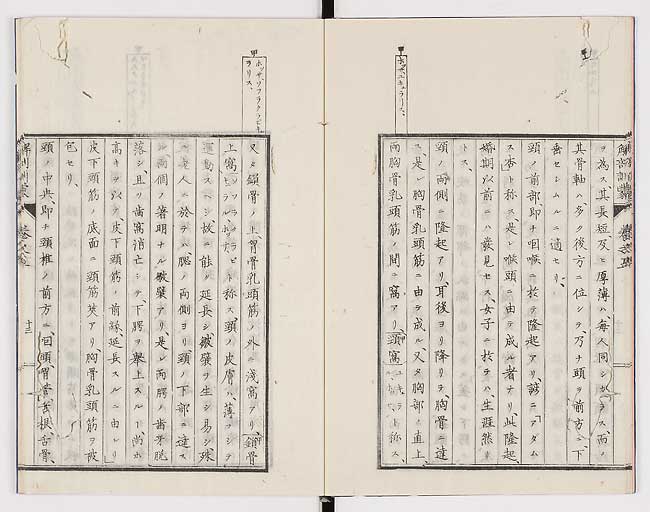 ヲ為ス其長短及ヒ厚薄ハ、毎人同シカラス而ノ
其骨軸、多ク後方ニ位シテ、乃チ頭ヲ前方ニ下
垂セシムルニ適セリ、
頸ノ前部即チ咽喉ニ於テ隆起アリ諺ニ「アダム
ス杏」ト称ス是レ喉頭ニ由テ成ル者ナリ此隆起、
婚期以前ニハ發見セス、女子ニ於テハ、生涯然リ
トス、
頸ノ両側ニ隆起アリ、耳後ヨリ降リテ、胸骨ニ達
ス是レ胸骨乳頭筋ニ由テ成ル、又タ胸部ノ直上
両胸骨乳頭筋ノ間ニ窩アリ「頸窩
ト称ス、
ホッサ、ソフラクラヒキュ
ラリス、
又タ鎖骨ノ上胸骨乳頭筋ノ外ニ淺窩アリ、鎖骨
上窩
ト称ス、頸ノ皮膚ハ、薄フシテ
運動スヘシ、故ニ能ク延長シ、皺襞ヲ生シ易シ殊
ニ老人ニ於テハ、腮ノ両側ヨリ頸ノ下部ニ達ス
ル両個ノ著明ナル皺襞ヲアリ、是レ両腭ノ歯牙脱
落シ、且リ歯窩消亡シテ、下腭ヲ擧上スルー尚ホ
高キヲ以テ皮下頸筋ノ前縁、延長スルニ由レリ
皮下頸筋ノ底面ニ頸筋莢アリ胸骨乳頭筋ヲ被
包セリ、
頸ノ中央、即チ頸椎ノ前方ニ
舌根、舌骨、
十三